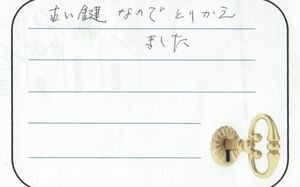 古い鍵なのでとりかえ
ました